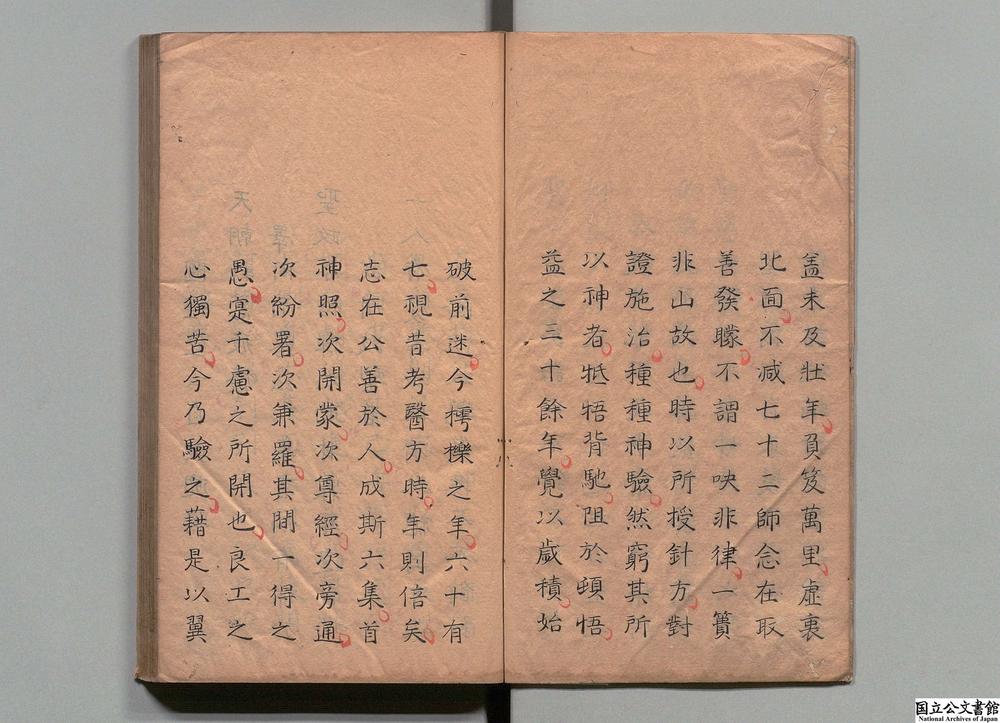 盖未及壮年負笈萬里虛裏
北面不减七十二師念在取
善發矇不謂一吷非律一簣
非山故也時以所授針方對
證施治種種神驗然窮其所
以神者牴牾背馳阻於頓悟
益之三十餘年覺以歲積始
破前迷今樗櫟之年六十有
七視昔考醫方時年則倍矣
志在公善於人成斯六集首
神照次開蒙次尊經次旁通
次紛署次兼羅其間一得之
愚寔千慮之所開也良工之
心獨苦今乃驗之藉是以翼
国立公文書館
National Archives of Japan